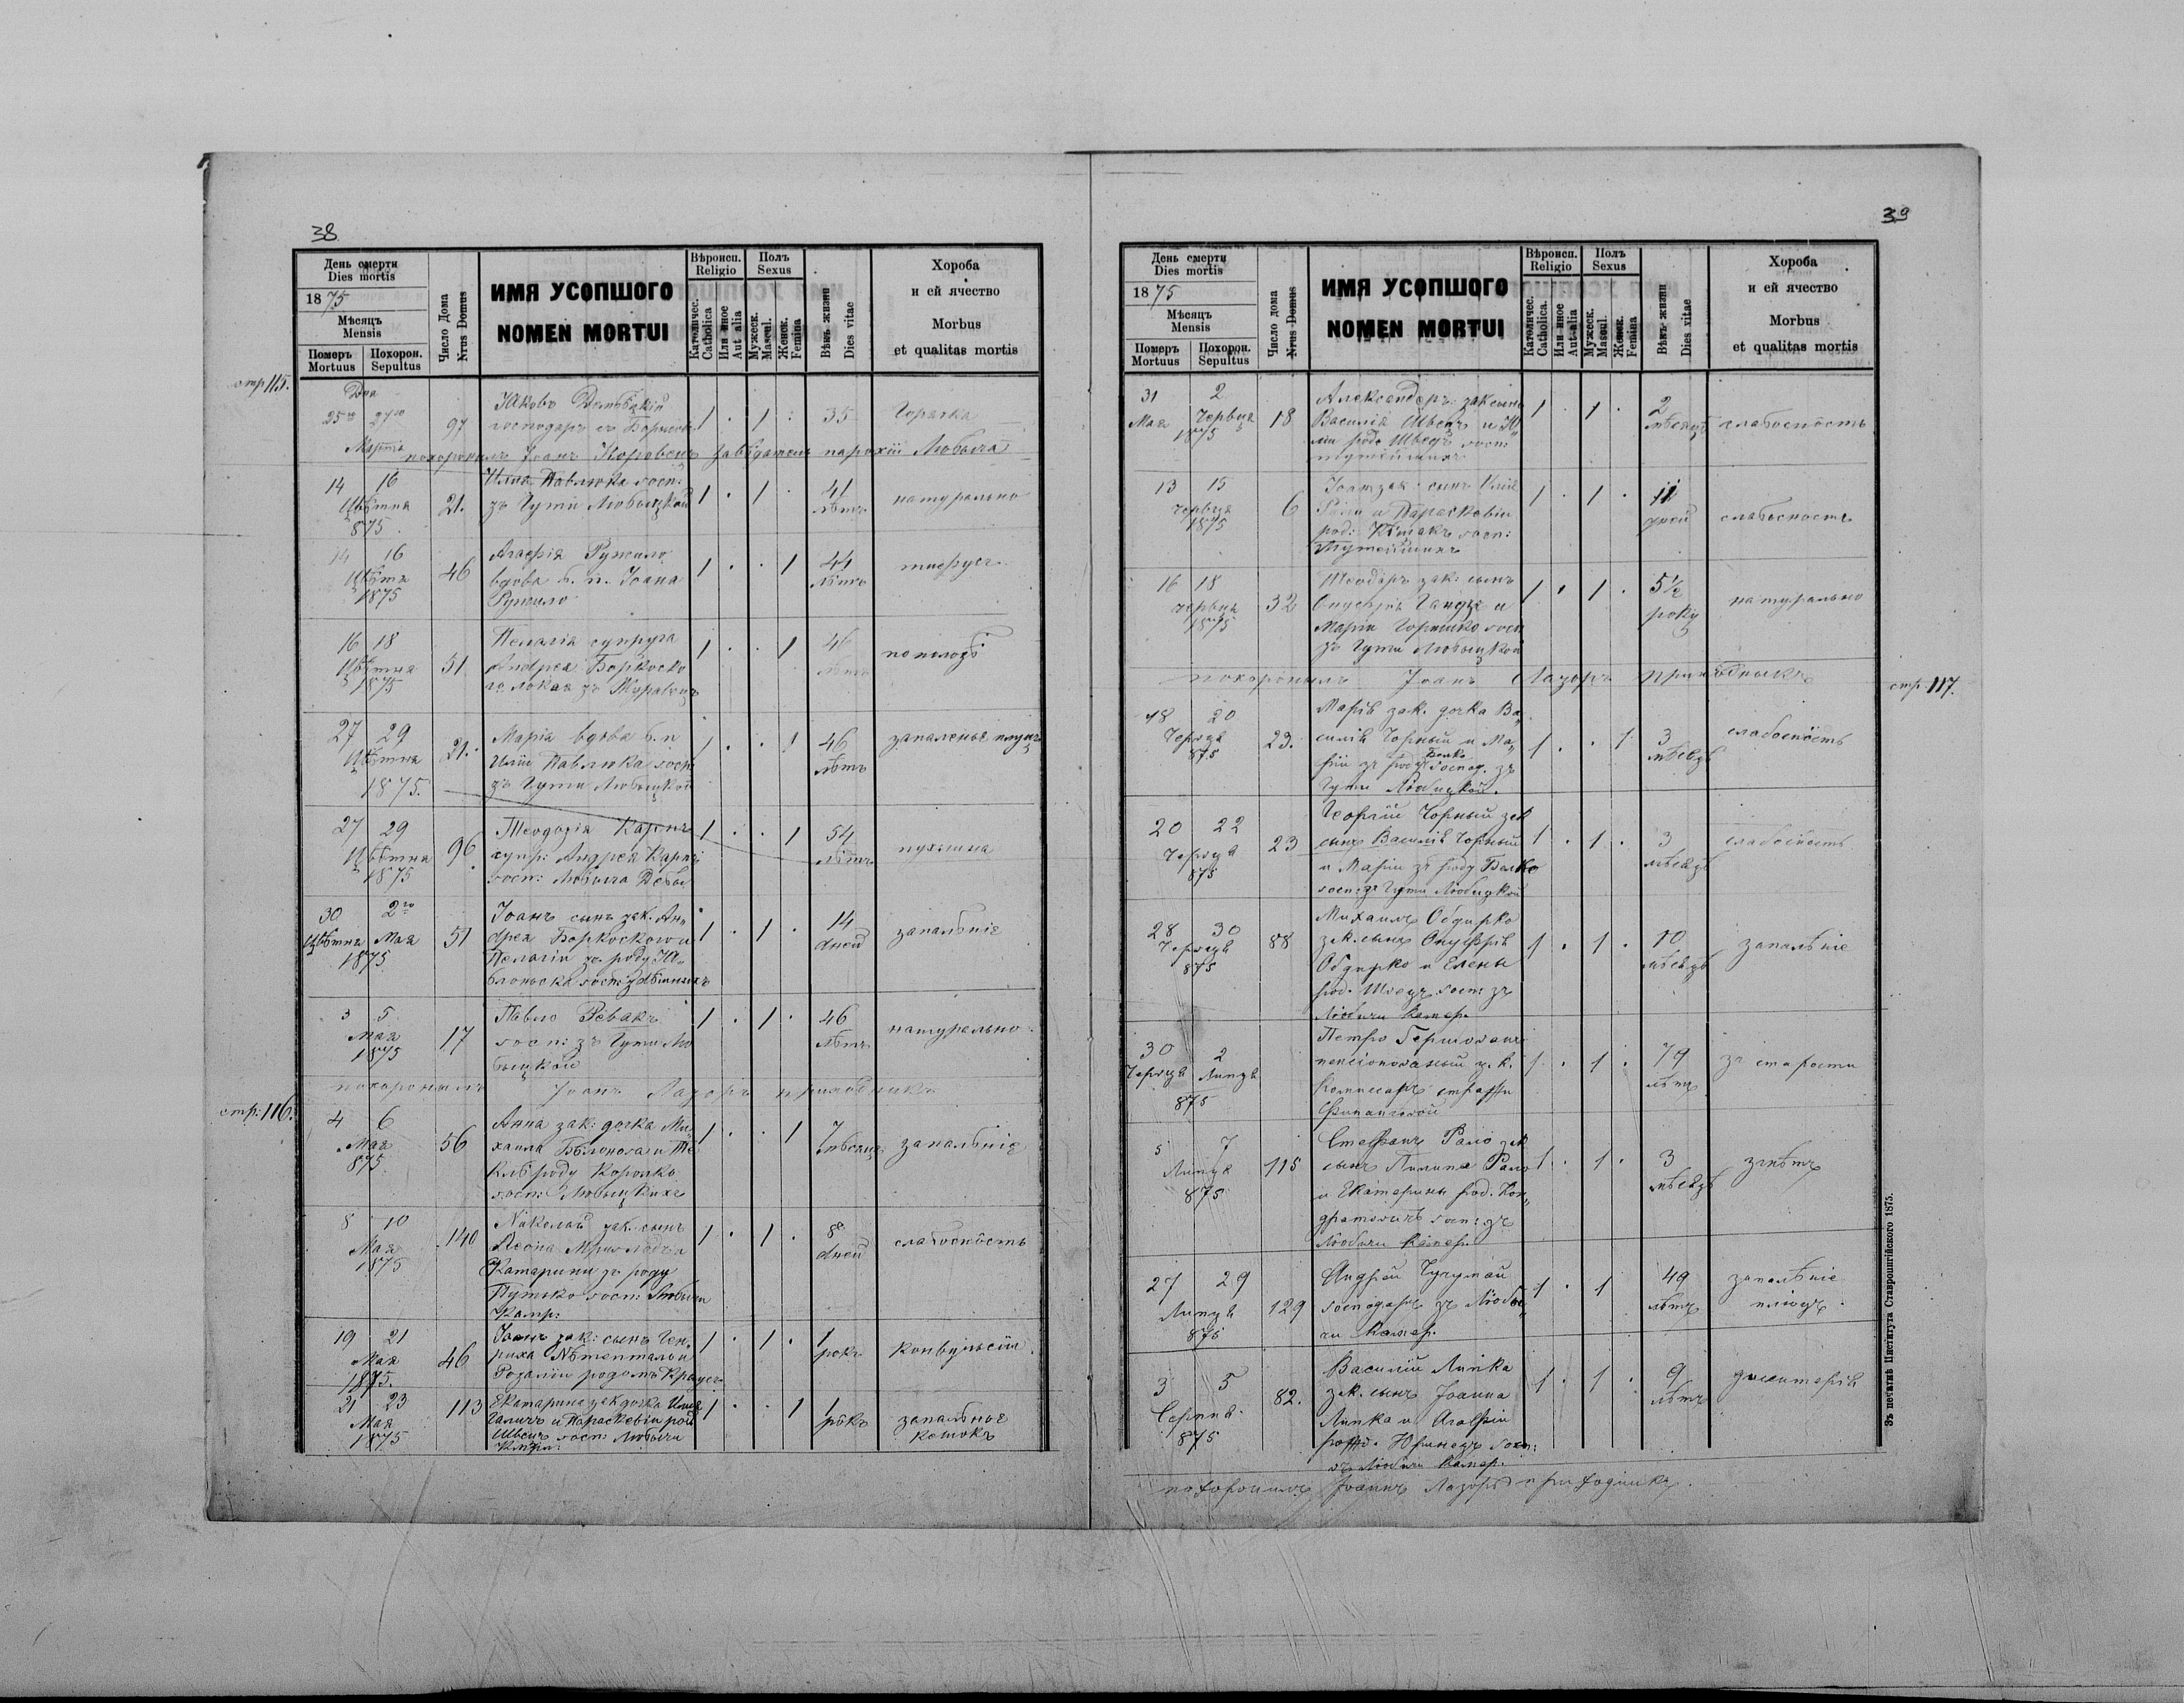 38
День смерти
Dies mortis
1875
Мѣсяцъ
Mensis
Померъ
Mortuus
Похорон.
Sepultus
Число Дома
Nrus Domus
ИМЯ УСОПШОГО
NOMEN MORTUI
Вѣроисп.
Religio
Католичес.
Catholica
Или иное
Aut alia
Полъ
Sexus
Мужеск.
Mascul.
Женск.
Femina
Вѣкъ жизни
Dies vitae
Хороба
и ей ячество
Morbus
et qualitas mortis
стр 115.
Дня
25го 27го 97 Яковъ 1 . 1 . 35 Горячка
господаръ
Марта
похоронилъ Іоанъ завѣдатель парохіи Любыча
14 16 21. Илия Павлюка госп: 1 . 1 . 41 натурально
Цвѣтня зъ Гути Любыцкой лѣтъ
875
14 16 46 Агафія Ружило 1 . . 1 44 тифусъ
Цвѣтня вдова б. п. Іоана лѣтъ
1875 Ружило
16 18 51 Пелагія супруга 1 . . 1 46 пополозѣ
Цвѣтня Андрея Боркоско лѣтъ
1875 го зъ
27 29 21. Марія вдова б. п. 1 . . 1 46 запаленье плуцъ
Цвѣтня Иліи Павлюка госп лѣтъ
1875. зъ Гути Любыцкой
27 29 96. Теодозія Карпъ 1 . . 1 54 пухлина
Цвѣтня супр: Андрея Карпа лѣтъ
1875 госп: Любыча
30 2го 51 Іоанъ сынъ зак. Ан- 1 . 1 . 14 запалѣніе
Цвѣтня Мая дрея Боркоского и дней
1875 Пелагіи зъ роду Я-
блоньска госп:
3 5 17 Павло Ревакъ 1 . 1 . 46 натурально
Мая госп: зъ Гути Лю лѣтъ
1875 быцкой
похоронилъ Іоанъ Лазоръ приходникъ
стр: 116.
4 6 56 Анна зак: дочка Ми- 1 . . 1 7 запалѣніе
Мая хаила и Те мѣсяц.
875 клѣ роду Королко
госп: Любыцкихъ
8 10 140 Николай зак. сынъ 1 . 1 . 8 слабосность
Мая Леона дней
1875 Катарини зъ роду
Путько госп: Любычи
Камр:
19 21 46 Іоанъ зак: сынъ Ген- 1 . 1 . 1 конвульсіи
Мая риха рокъ
1875. Розаліи родомъ Краусъ
21 23 113 Екатарина зак дочка Илія 1 . . 1 1 запалѣнье
Мая Галичъ и Параскевіи род рокъ кишокъ
1875 Швецъ госп: Любычи
Камр:
39
День смерти
Dies mortis
1875
Мѣсяцъ
Mensis
Померъ
Mortuus
Похорон.
Sepultus
Число дома
Nrus Domus
ИМЯ УСОПШОГО
NOMEN MORTUI
Вѣроисп.
Religio
Католичес.
Catholica.
Или иное
Aut-alia
Полъ
Sexus
Мужеск.
Mascul.
Женск.
Femina
Вѣкъ жизни
Dies vitae
Хороба
и ей ячество
Morbus
et qualitas mortis
31 2 18 Александеръ: зак сынъ 1 . 1 . 2 слабосность
Мая Червця Василія Швецъ и Ю- мѣсяцѣ
1875 ліи родъ Шведъ госп:
тутейшихъ
13 15 6 Іоан зак: сынъ Илія 1 . 1 . 11 слабосность
червця и Параскевіи дней
1875 род: госп:
Тутейшихъ
16 18 32 Теодоръ зак: сынъ 1 . 1 . 5½ натурально
червця Онуфрія и року
1875 Маріи Горошко госп
зъ Гути Любыцкой
похоронилъ Іоанъ Лазоръ приходникъ
стр. 117.
18 20 23. Марія зак. дочка Ва- 1 . . 1 3 слабосность
Червця силія Чорный и Ма- мѣсяцѣ
875 ріи зъ роду Белко господ. зъ
Гути Любицкой.
20 22 23 Георгій Чорный зак 1 . 1 . 3 слабосность
Червця сынъ Василія Чорный мѣсяцѣ
875 и Маріи зъ роду Белко
госп: зъ Гути Любицкой
28 30 88 Михаилъ Обдирко 1 . 1 . 10 запалѣніе
Червця зак. сынъ Онуфрія мѣсяцѣ
875 Обдирко и Елены
род. Швецъ госп: зъ
Любичи Камер.
30 2 Петро 1 . 1 . 79 зъ старости
Червця Липця пенсіонованый ц. к. лѣтъ
875 Коммисаръ стражи
финансовой
5 7 115 Стефанъ Рало зак 1 . 1 . 3
Липця сынъ Пилипа Рало мѣсяцѣ
875 и Екатерины род. Кон-
дратовичъ госп: зъ
Любичи Камер.
27 29 129 Андрей 1 . 1 49 запалѣніе
Липця господаръ зъ Люби- лѣтъ плюцъ.
875 чи Камер.
3 5 82. Василій Липка 1 . 1 . 9 дизентерія
Серпня зак. сынъ Іоанна лѣтъ
875 Липка и Агафіи
родж. госп:
зъ Любичи Камер.
похоронилъ Іоаннъ Лазоръ приходникъ.
Зъ печатнѣ Института Ставропигійского 1875.